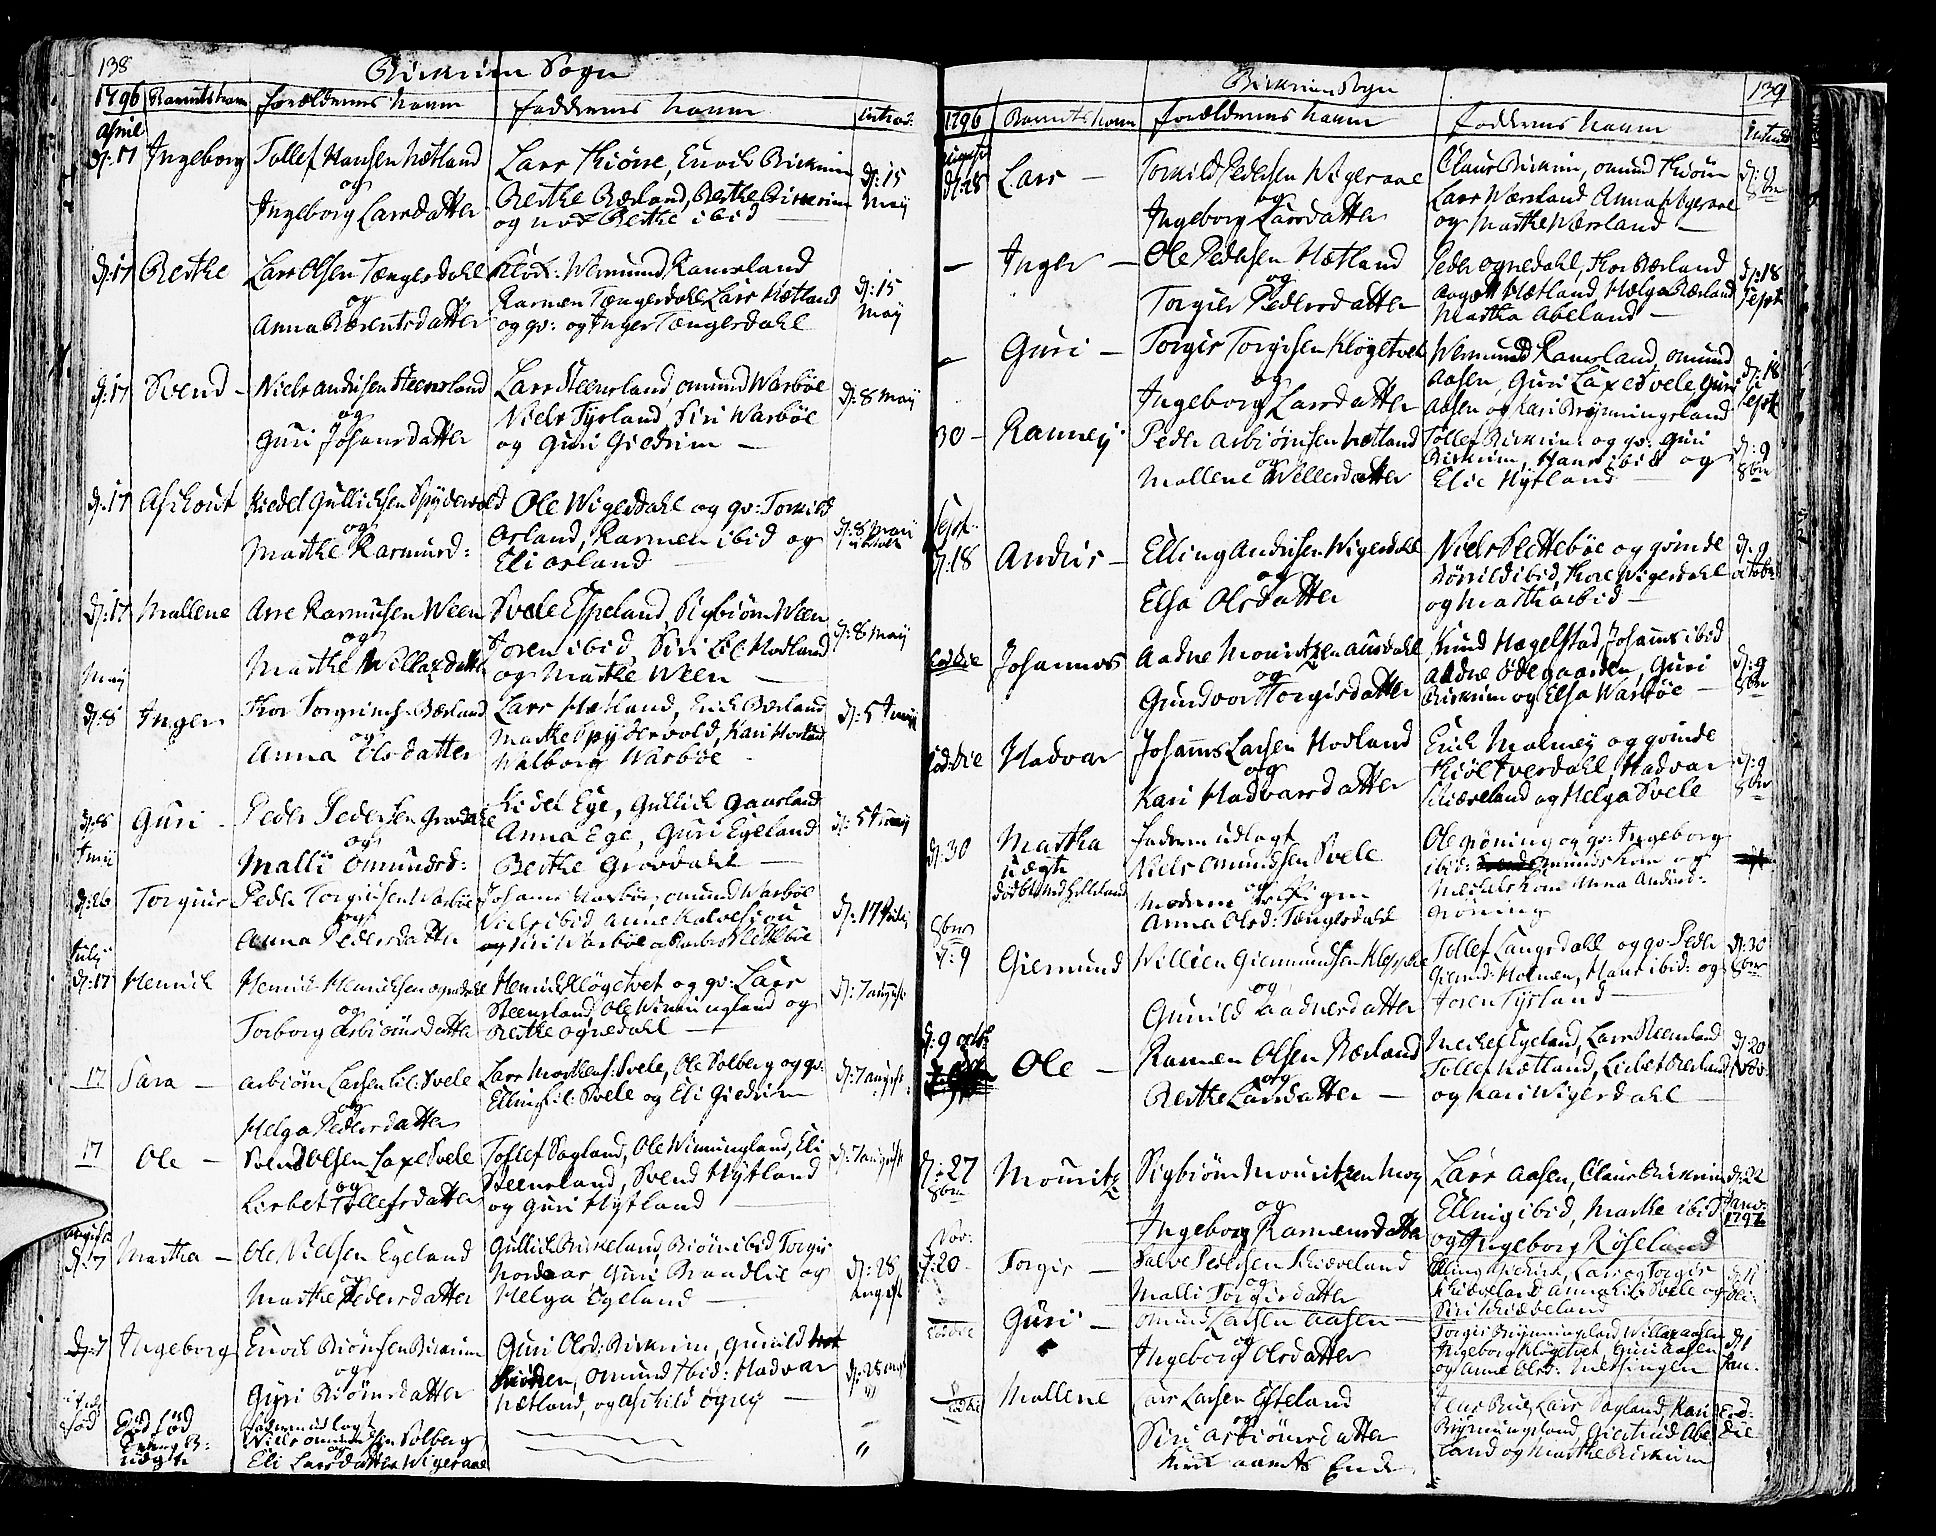 138
Birkrim Sogn
1796 Barnets navn forældrenes navn faddernes navn introd:
April
d: 17 Ingeborg Tollef Hansen Hætland
og
Ingeborg Larsdatter
Lars Kiørre, Envik Birkrim
Berthe Bærland, Berthe Birkrim
og nok Berthe ibid
d: 15
May
d: 17 Berthe Lars Olsen Tængesdahl
og
Anna Bærentsdatter
Klok: Wermund Ramsland
Rasmen Tængesdahl Lars Hætland
og qv: og Inger Tængesdahl
d: 15
May
d: 17 Svend Niels Andrisen Steensland
og
Guri Johansdatter
Lars Steensland, Omund Warbøe
Niels Tysland, Siri Warbøe
og Guri Giedrim
d: 8 May
d: 17 Aslout Kiedel Gullichsen Spydevold
og
Marthe Rasmusd:
Ole Wigesdahl og qv: Tomild
Orland, Rasmen ibid og
Eli Orland
d: 8 May
d: 17 Mallene Arre Rasmusen Ween
og
Marthe Willaxdatter
Svele Espeland, Sigbiørn Ween
Joren ibid, Siri Lil: Hodland
og Marthe Ween
d: 8 May
May
d: 8 Inger Thor Torgrims: Bærland
og
Anna Elsdatter
Lars Hætland, Erick Bærland
Marthe Spydevold, Kari Hodland
Walborg Warbøe
d: 5 Juny
d: 8 Guri Peder Pedersen Grøvdahl
og
Malli Omundsd:
Kidel Ege, Gullick Gaarland
Anna Ege, Guri Egeland
Berthe Grøvdahl
d: 5 Juny
Juny
d: 26 Torgiur Peder Torgiursen Warbøe
og
Anna Pedersdatter
Johannes Warbøe, Omund Warbøe
Niels ibid Anne
og Siri Warbøe
d: 17 July
July
d: 17 Henrick Henrick Henrichsen Ognedahl
og
Torborg Asbiørnsdatter
Henrick Kløgetvet og qv: Lars
Steensland, Ole Winningland og
Berthe Ognedahl
d: 7 august
17 Sara Asbiørn Larsen Lil: Svele
og
Helga Pedersdatter
Lars Mortens: Svele, Ole Solberg og qv:
Elling Lil: Svele og Eli Giedrim
d: 7 august
17 Ole Svend Olsen Laxesvele
og
Lisbet Tollefsdatter
Tollef Sagland, Ole Winningland, Eli
Steensland, Svend Hytland
og Guri Hytland
d: 7 august
August
d: 7 Martha Ole Nielsen Egeland
og
Marthe Pedersdatter
Gullick Birkeland, Biørn ibid Torgir
Nordaas, Guri Brandlie og
Helga Egeland
d: 28
August
d: 7 Ingeborg Envik Biørnsen Birkrim
og
Gyri Biørnsdatter
Guri Olsd: Birkrim, Gunild
Omund ibid: Hadvar
Hætland, og Aschild Øgrey
d: 28 Aug:
fød
uægte
faderen udlagt
Niels Omundsen Solberg
og
Eli Larsdatter Wigesaae
"
139
Birkrim Sogn
1796 Barnets navn forældrenes navn faddernes navn introd
August
d: 28 Lars Tomild Pedersen Wigesaae
og
Ingeborg Larsdatter
Claus Birkrim, Omund Kiørn
Lars Wærsland Anna Wigesaae
og Marthe Wærsland
d: 9
8br
Inger Ole Pedersen Hætland
og
Torgier Pedersdatter
Peder Ognedahl, Thor Bærland
Aagot Hætland, Helga Bærland
Martha Abeland
d: 18
Sept
Guri Torgir Torgirsen Kløgetvet
og
Ingeborg Larsdatter
Wermund Ramsland, Omund
Aasen, Guri Laxesvele Guri
Aasen og Kari Brynningsland
d: 18
Sept
30 Ranney Peder Asbiørnsen Hætland
og
Mallene Willersdatter
Tollef Birkrim og qv: Guri
Birkrim, Hans ibid og
Elie Hytland
d: 9
8br
Sept:
d: 18 Andris Elling Andrisen Wigesdahl
og
Elsa Olsdatter
Niels Slettebøe og qvinde
Tørrild ibid, Thore Wigesdahl
og Martha ibid
d: 9
octobr
Eod: die Johannes Aadne Mouritzen Ausdahl
og
Gundvor Torgisdatter
Knud Hægelstad, Johannes ibid
Aadne Ødegaarden, Guri
Birkrim og Elsa Warbøe
d: 9
8br
Eod: die Hadvar Johannes Larsen Hodland
og
Kari Hadvarsdatter
Erick Malmey og qvinde
Kiøl Iversdahl, Hadvar
Skiæveland og Helga Svele
d: 9
8br
d: 30 Martha
uægte
faderen udlagt
Niels Omundsen Svele
og
Moderen Pigen
Anna Olsd: Tængesdahl
Ole Grøning og qv: Ingeborg
ibid: Omunds Kone og
Michels Kone Anna Andersd:
Grøning
8br
d: 9 Giermund Willien Giermundsen Kleppelie
og
Gunild Aadnesdatter
Tollef Langsdahl og qv: Peder
Giermd: Holmen, Hans ibid: og
Joren Tysland
d: 30
8br
d: 9 octb: Ole Rasmen Olsen Bærland
og
Berthe Larsdatter
Michel Egeland, Lars Steensland
Tollef Hætland, Lisbet Bærland
og Kari Wigesdahl
d: 20
Nov:
d: 27
8br Mouritz Sigbiørn Mouritzen Moy
og
Ingeborg Rasmensdatter
Lars Aasen, Claus Birkrim
Elling ibid, Marthe ibid
og Ingeborg Røseland
d: 22
Janu:
1797
Nov:
d: 20 Torgir Salve Pedersen Skiæveland
og
Malli Torgirsdatter
Elling Giedrim, Lars og Torgir
Skiæveland Anna Lil: Svele og
Siri Skiæveland
Eod: die Guri Omund Larsen Aasen
og
Ingeborg Olsdatter
Torgir Brynningsland, Willax Aasen
Ingeborg Kløgetvet, Guri Aasen
og Anne Olsd:
d: 1
Jan:
Eod: die Mallene Lars Larsen Espeland
og
Siri Asbiørnsdatter
Kirkeaarets Ende
Jens Brue, Lars Sagland, Kari
Brynningsland, Giertrud Abe-
land og Marthe Birkrim
Eod:
die